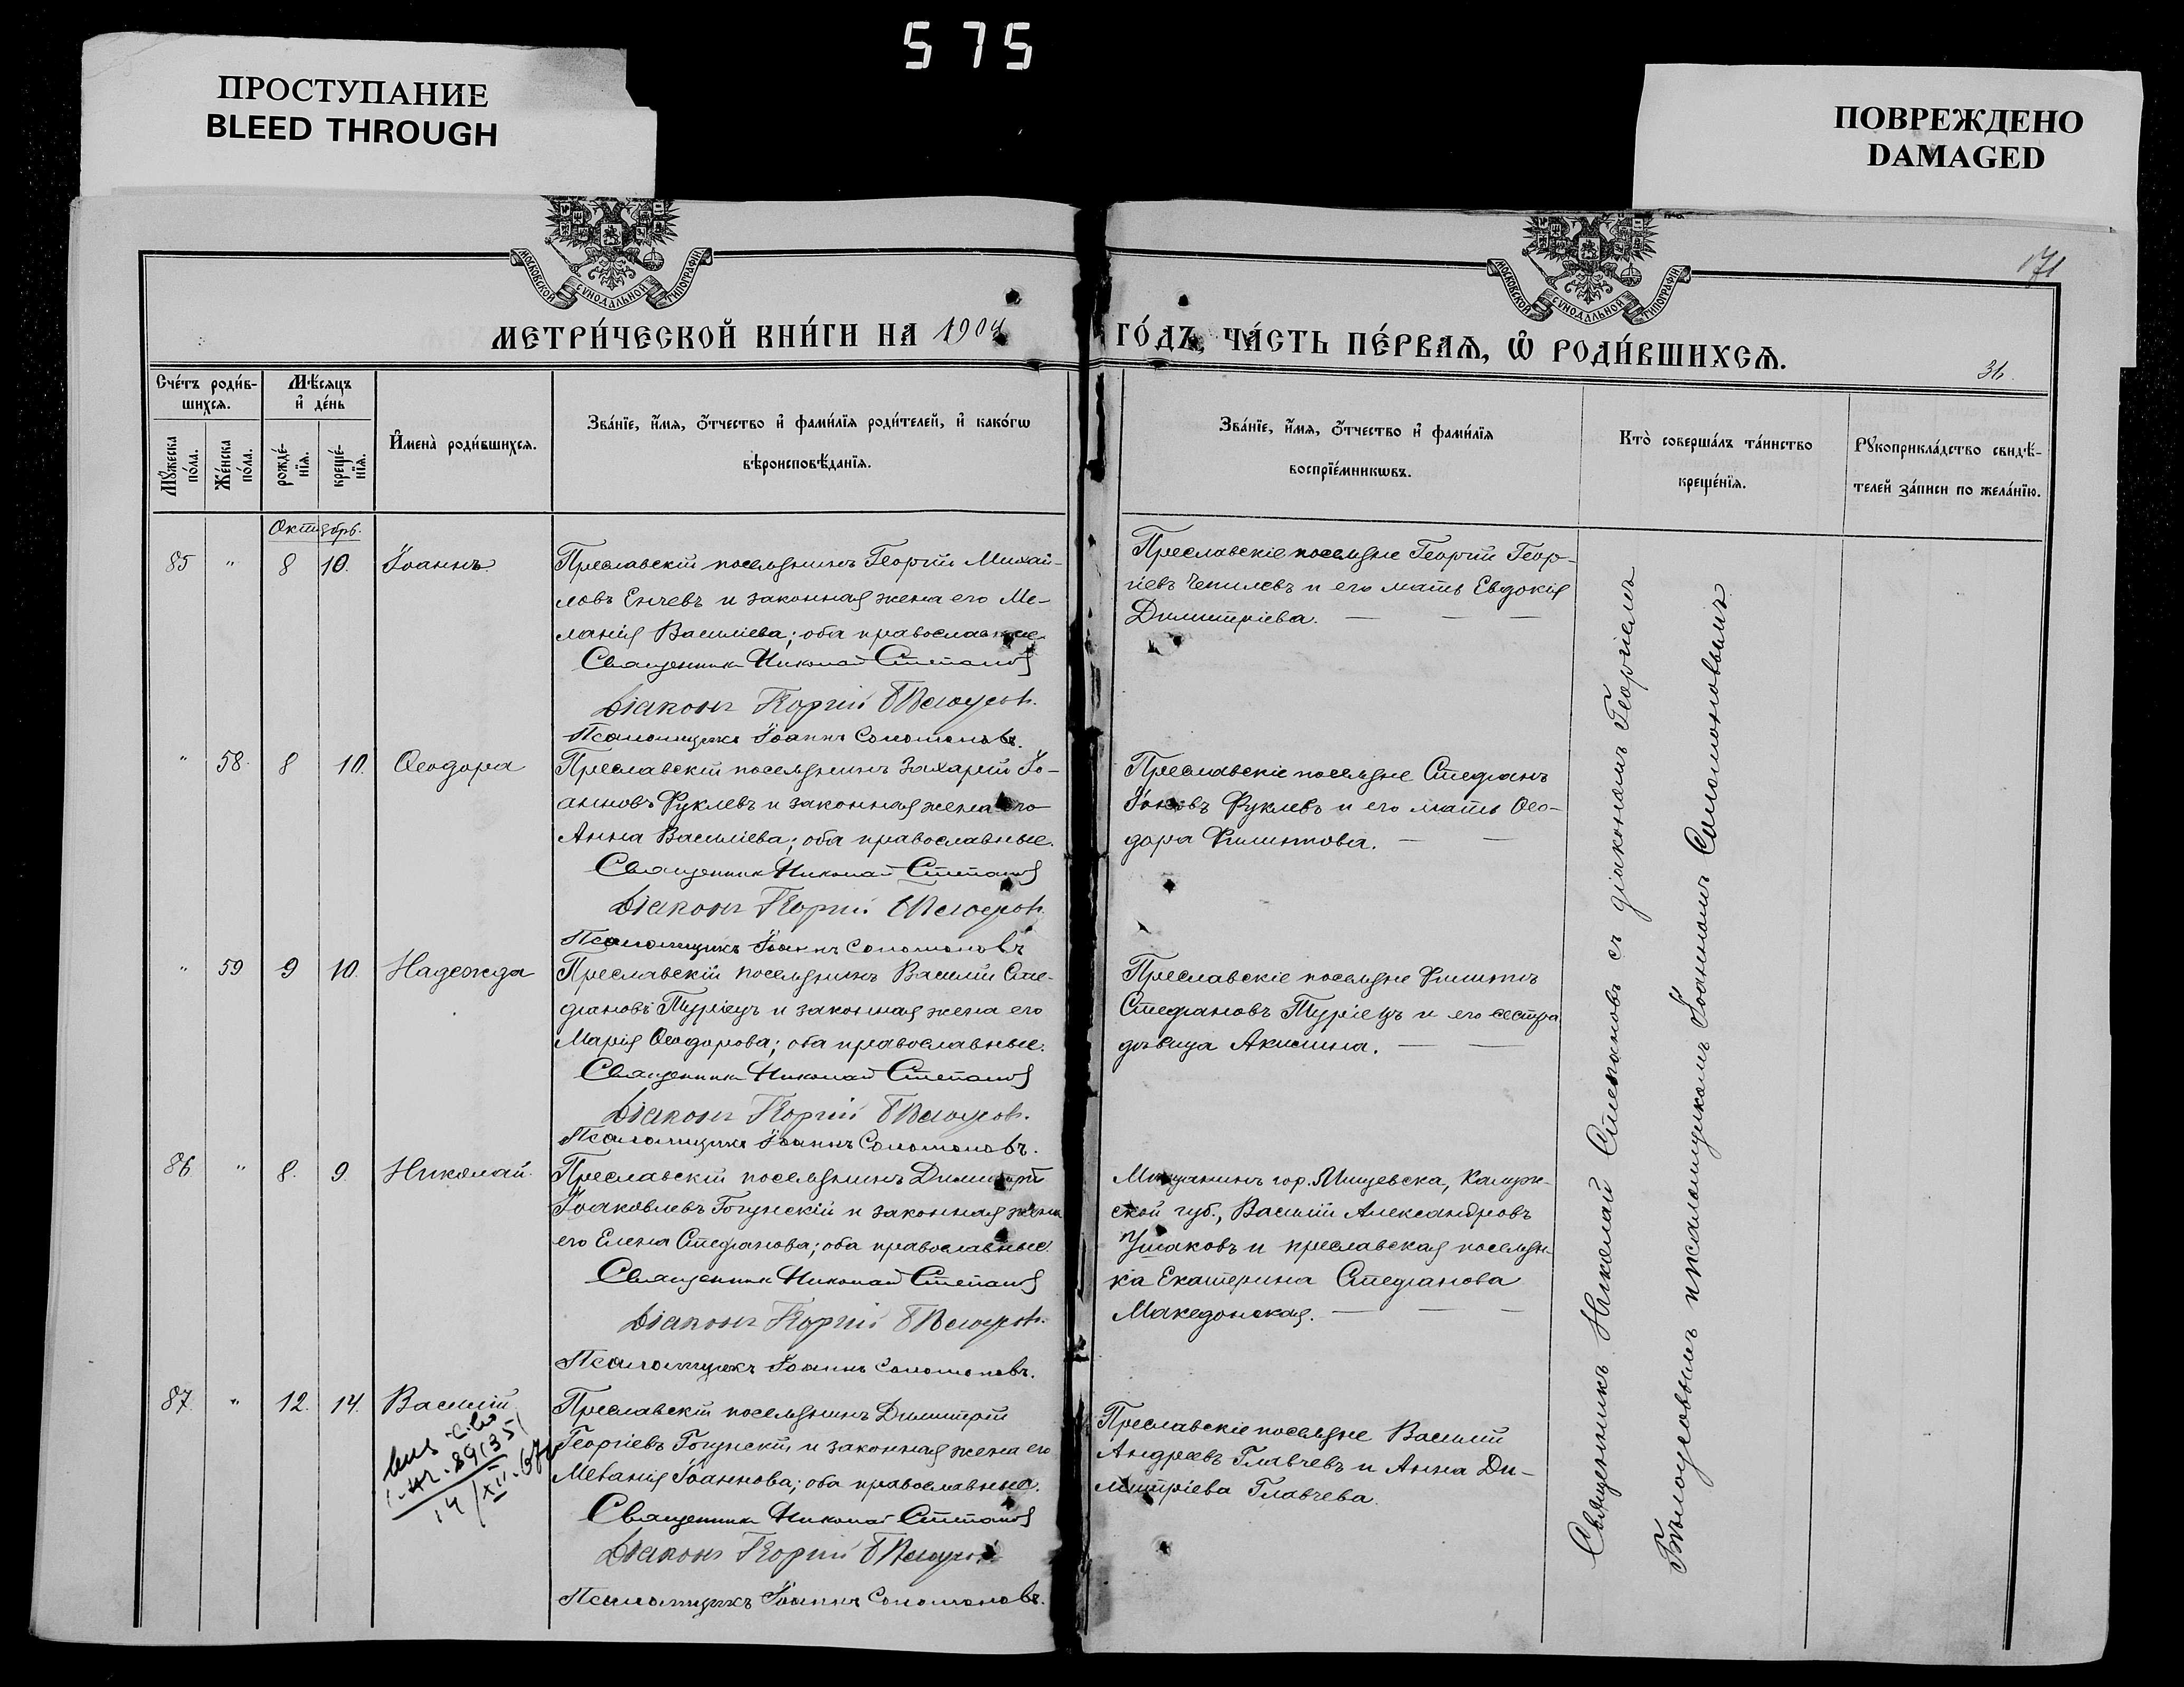 575
ПРОСТУПАНИЕ
BLEED THROUGH
ПОВРЕЖДЕНО
DAMAGED
МОСКОВСКОЙ СѴНОДАЛЬНОЙ ТИПОГРАФІИ
МОСКОВСКОЙ СѴНОДАЛЬНОЙ ТИПОГРАФІИ
171
МЕТРИ́ЧЕСКОЙ КНИ́ГИ НА 1904
ГО́ДЪ, ЧА́СТЬ ПЕ́РВАѦ, Ѡ҆ РОДИ́ВШИХСѦ.
31.
Сче́тъ роди́в-
шихсѧ.
Мѣ́сяцъ
и҆ де́нь
Мꙋ́жеска
по́ла.
Же́нска
по́ла.
рожде́-
нїѧ.
креще́-
нїѧ.
И҆мена̀ роди́вшихсѧ.
Зва́нїе, и҆́мѧ, ѻ҆́тчество и҆ фами́лїѧ роди́телей, и҆ како́гѡ
вѣроисповѣ́данїѧ.
Зва́нїе, и҆́мѧ, ѻ҆́тчество и҆ фами́лїѧ
воспрїе́мникѡвъ.
Кто̀ соверша́лъ та́инство
креще́нїѧ.
Рꙋкоприкла́дство свидѣ́-
телей за́писи по жела́нїю.
Октябрь.
85 " 8 10. Іоаннъ
Преславскій поселянинъ Георгій Михай-
ловъ Енчевъ и законная жена его Ме-
ланія Василіева; оба православные
Священникъ Николай Степановъ
Діаконъ Георгій Бѣлоусовъ.
Псаломщикъ Іоаннъ Соломоновъ.
Преславскіе поселяне Георгій Геор-
гіевъ Чепилевъ и его мать Евдокія
Димитріева.
" 58 8 10. Ѳеодора
Преславскій поселянинъ Захарій Іо-
анновъ Фуклевъ и законная жена его
Анна Василіева; оба православные.
Священникъ Николай Степановъ
Діаконъ Георгій Бѣлоусовъ.
Псаломщикъ Іоаннъ Соломоновъ
Преславскіе поселяне Стефанъ
Фуклевъ и его мать Ѳео-
дора Филиппова.
" 59 9 10. Надежда
Преславскій поселянинъ Василій Сте-
фановъ Туріецъ и законная жена его
Марія Ѳеодорова; оба православные.
Священникъ Николай Степановъ
Діаконъ Георгій Бѣлоусовъ.
Псаломщикъ Іоаннъ Соломоновъ.
Преславскіе поселяне Филиппъ
Стефановъ Туріецъ и его сестра
дѣвица Акилина.
86 " 8. 9. Николай.
Преславскій поселянинъ Димитрій
Іоаковлевъ Гогунскій и законная жена
его Елена Стефанова; оба православные.
Священникъ Николай Степановъ
Діаконъ Георгій Бѣлоусовъ.
Псаломщикъ Іоаннъ Соломоновъ.
Мѣщанинъ гор. Мищевска, Калуж-
ской губ., Василій Александровъ
Ушаковъ и преславская поселян-
ка Екатерина Стефанова
Македонская.
87. " 12. 14. Василій
14/XII.
Преславскій поселянинъ Димитрій
Георгіевъ Гогунскій и законная жена его
Меѳанія Іоаннова; оба православные.
Священникъ Николай Степановъ
Діаконъ Георгій Бѣлоусовъ
Псаломщикъ Іоаннъ Соломоновъ.
Преславскіе поселяне Василій
Андреевъ Главчевъ и Анна Ди-
митріева Главчева.
Священникъ Николай Степановъ съ діакономъ Георгіемъ
Бѣлоусовымъ и псаломщикомъ Іоанномъ Соломоновымъ